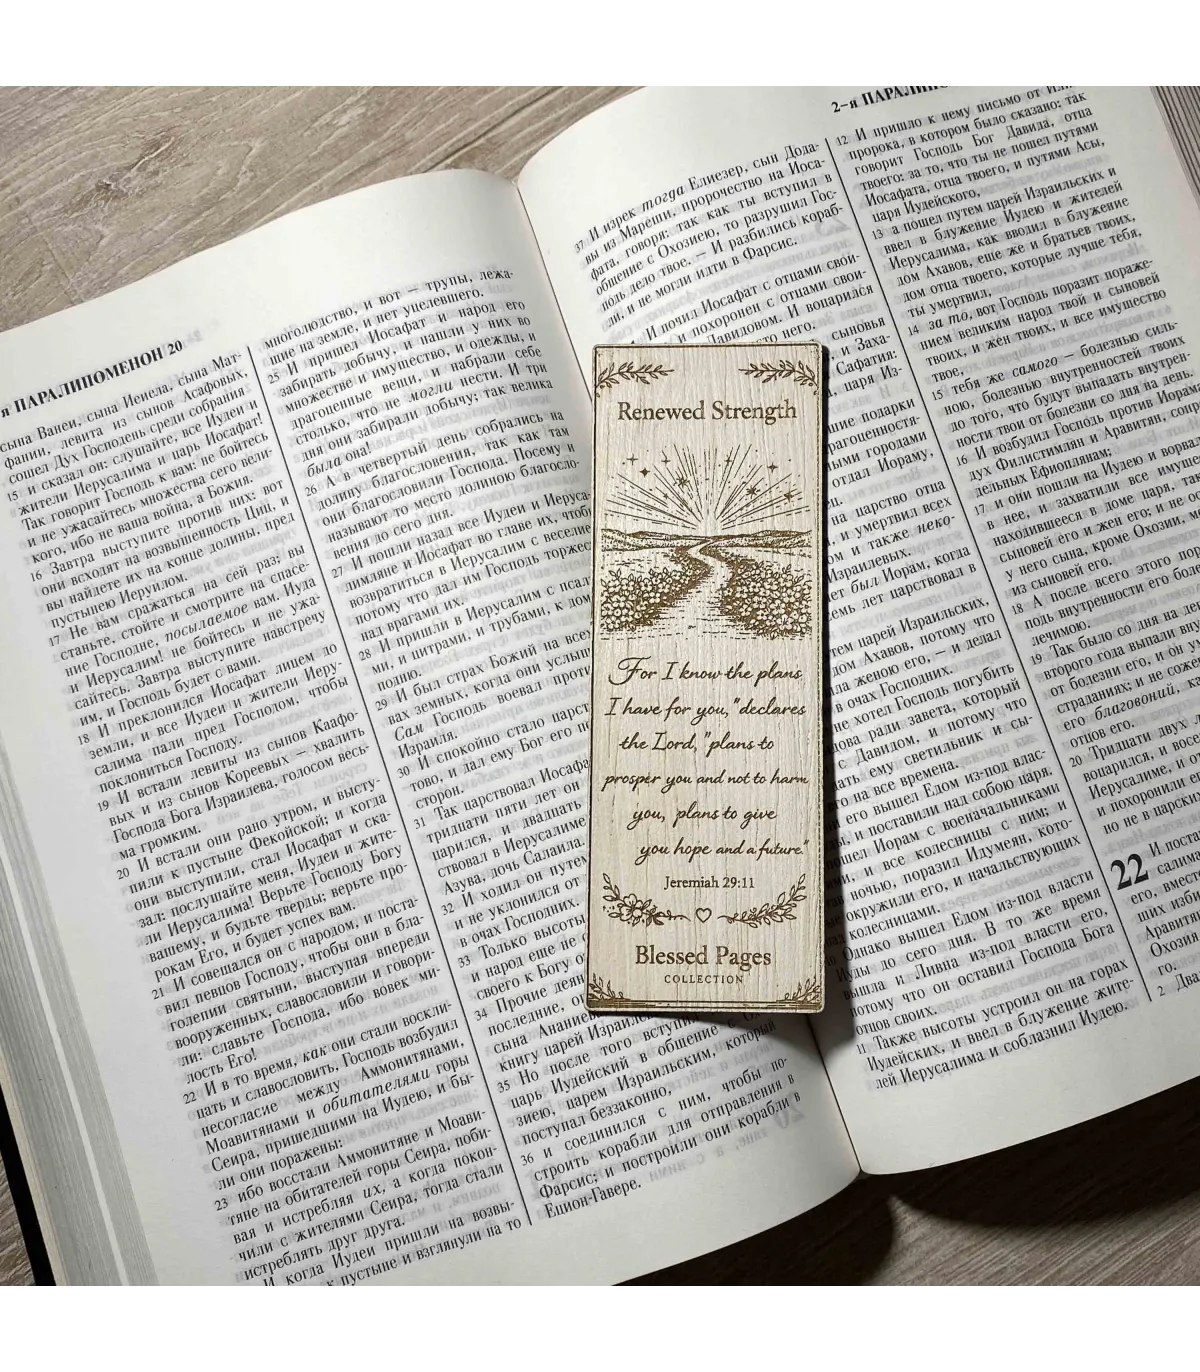 я ПАРАЛИПОМЕНОН 20
сына Ванеи, сына Иеиела, сына Мат-
фании, левита из сынов Асафовых,
сошел Дух Господень среди собрания
15 и сказал он: слушайте, все Иудеи и
жители Иерусалима и царь Иосафат!
Так говорит Господь к вам: не бойтесь
и не ужасайтесь множества сего вели-
кого, ибо не ваша война, а Божия.
16 Завтра выступите против них: вот
они всходят на возвышенность Циц, и
вы найдете их на конце долины, пред
пустынею Иеруилом.
17 Не вам сражаться на сей раз; вы
станьте, стойте и смотрите на спасе-
ние Господне, посылаемое вам. Иуда
и Иерусалим! не бойтесь и не ужа-
сайтесь. Завтра выступите навстречу
им, и Господь будет с вами.
18 И преклонился Иосафат лицем до
земли, и все Иудеи и жители Иеру-
салима пали пред Господом, чтобы
поклониться Господу.
19 И встали левиты из сынов Каафо-
вых и из сынов Кореевых — хвалить
Господа Бога Израилева, голосом весь-
ма громким.
20 И встали они рано утром, и высту-
пили к пустыне Фекойской; и когда
они выступили, стал Иосафат и ска-
зал: послушайте меня, Иудеи и жите-
ли Иерусалима! Верьте Господу Богу
вашему, и будьте тверды; верьте про-
рокам Его, и будет успех вам.
21 И совещался он с народом, и поста-
вил певцов Господу, чтобы они в бла-
голепии святыни, выступая впереди
вооруженных, славословили и говори-
ли: славьте Господа, ибо вовек ми-
лость Его!
22 И в то время, как они стали воскли-
цать и славословить, Господь возбудил
несогласие между Аммонитянами,
Моавитянами и обитателями горы
Сеира, пришедшими на Иудею, и бы-
ли они поражены:
23 ибо восстали Аммонитяне и Моави-
тяне на обитателей горы Сеира, поби-
вая и истребляя их, а когда покон-
чили с жителями Сеира, тогда стали
истреблять друг друга.
И когда Иудеи пришли на возвы-
к пустыне и взглянули на то
многолюдство, и вот — трупы, лежа-
щие на земле, и нет уцелевшего.
25 И пришел Иосафат и народ его
забирать добычу, и нашли у них во
множестве и имущество, и одежды, и
драгоценные вещи, и набрали себе
столько, что не могли нести. И три
дня они забирали добычу; так велика
была она!
26 А в четвертый день собрались на
долину благословения, так как там
они благословили Господа. Посему и
называют то место долиною благосло-
вения до сего дня.
27 И пошли назад все Иудеи и Иеруса-
лимляне и Иосафат во главе их, чтобы
возвратиться в Иерусалим с веселие
потому что дал им Господь торжес
над врагами их.
28 И пришли в Иерусалим с псал
ми, и цитрами, и трубами, к дом
подню.
29 И был страх Божий на все
вах земных, когда они услыш
Сам Господь воевал против
Израиля.
30 И спокойно стало царст
тово, и дал ему Бог его по
сторон.
31 Так царствовал Иосафа
тридцати пяти лет он
царился, и двадцать
ствовал в Иерусалиме
Азува, дочь Салаила.
32 И ходил он путем
и не уклонился от
в очах Господних.
33 Только высоты
и народ еще не о
своего к Богу о
34 Прочие деян
последние, о
сына Ананиe
книгу царей Израильск
35 Но после того вступил
царь Иудейский в общение с Ох
зиею, царем Израильским, который
поступал беззаконно,
36 и соединился с ним, чтобы по-
строить корабли для отправления в
Фарсис; и построили они корабли в
Ецион-Гавере.
37 И изрек тогда Елиезер, сын Дода-
вы из Мареши, пророчество на Иоса-
фата, говоря: так как ты вступил в
общение с Охозиею, то разрушил Гос-
подь дело твое. — И разбились кораб-
ли, и не могли идти в Фарсис.
И почил Иосафат с отцами свои-
похоронен с отцами свои-
Давидовом. И воцарился
сто него.
сыновья
и Заха-
Сафатия:
царя Из-
шие подарки
рагоценностя-
ными городами
отдал Иораму,
на царство отца
и умертвил всех
и также неко-
Израилевых.
лет был Иорам, когда
семь лет царствовал в
тем царей Израильских,
дом Ахавов, потому что
ыла женою его, — и делал
в очах Господних.
не хотел Господь погубить
дова ради завета, который
с Давидом, и потому что
дать ему светильник и сы-
го на все времена.
его вышел Едом из-под влас-
ды; и поставили над собою царя.
пошел Иорам с военачальниками
и все колесницы с ним; и
ночью, поразил Идумеян, кото-
окружили его, и начальствующих
колесницами.
Однако вышел Едом из-под власти
Иуды до сего дня. В то же время
вышла и Ливна из-под власти его,
потому что он оставил Господа Бога
отцов своих.
11 Также высоты устроил он на горах
Иудейских, и ввел в блужение жите-
лей Иерусалима и соблазнил Иудею.
2-я ПАРАЛИПО
12 И пришло к нему письмо от Или
пророка, в котором было сказано: так
говорит Господь Бог Давида, отца
твоего: за то, что ты не пошел путями
Иосафата, отца твоего, и путями Асы,
царя Иудейского,
13 а пошел путем царей Израильских и
ввел в блужение Иудею и жителей
Иерусалима, как вводил в блужение
дом Ахавов, еще же и братьев твоих,
дом отца твоего, которые лучше тебя,
ты умертвил,
14 за то, вот Господь поразит пораже-
нием великим народ твой и сыновей
твоих, и жен твоих, и все имущество
твое,
15 тебя же самого — болезнью силь-
ною, болезнью внутренностей твоих
до того, что будут выпадать внутрен-
ности твои от болезни со дня на день.
16 И возбудил Господь против Иорама
дух Филистимлян и Аравитян, сопре
дельных Ефиоплянам;
17 и они пошли на Иудею и ворва
в нее, и захватили все имуще
находившееся в доме царя, так
сыновей его и жен его; и не ос
у него сына, кроме Охозии, м
из сыновей его.
18 А после всего этого пор
подь внутренности его боле
лечимою.
19 Так было со дня на де
второго года выпали вну
от болезни его, и он ум
страданиях; и не сожe
его благовоний, как
отцов его.
20 Тридцати двух л
воцарился, и восем
Иерусалиме, и о
и похоронили е
но не в царски
22 И поста
салима
его, вместо
ших изби
Аравитя
Охозия
го.
2 Два
Renewed Strength
For I know the plans
I have for you," declares
the Lord, "plans to
prosper you and not to harm
you, plans to give
you hope and a future."
Jeremiah 29:11
Blessed Pages
COLLECTION